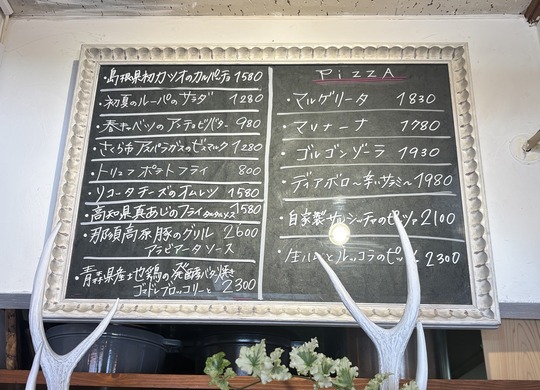 ・島根県初カツオのカルパッチョ 1580
・初夏のルーパのサラダ 1280
・春キャベツのアンチョビバター 980
・さぬき アスパラガスのビスマルク 1280
・トリュフ ポテトフライ 800
・リコータチーズのオムレツ 1580
・高知県真あじのフライ タルタルソース 1580
・那須高原豚のグリル 2600
アラビアータソース
・青森県産地鶏の発酵バター焼き
ゴマドレブロッコリーと 2300
PizzA
・マルゲリータ 1830
・マリナーナ 1780
・ゴルゴンゾーラ 1930
・ディアボロ〜辛いサラミ〜 1980
・自家製サルシッチャのピッツァ 2100
・生ハムとルッコラのピッツァ 2300